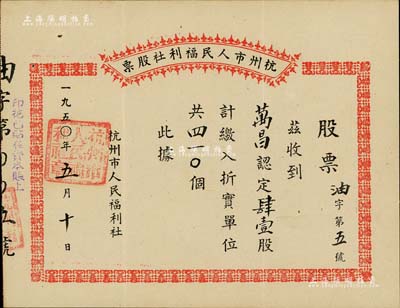 上海阳明拍卖
杭州市人民福利社股票
股票 油字第五號
茲收到
萬昌 認定肆壹股
計繳入折實單位
共四一〇個
此據
杭州市人民福利社
一九五〇年五月十日
印花已貼在存根賬上
油字第〇〇五號